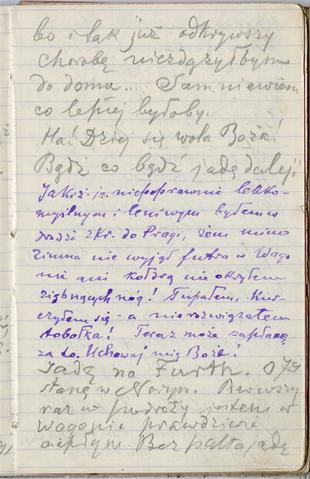 bo i tak już odkrywszy
chorobę nie zdążyłbym
do domu... Sam nie wiem
co lepiej byłoby.
Ha! Dziej się wola Boża!
Bądź co bądź jadę dalej!
Jakiż ja niepoprawnie lekko-
myślnym i leniwym byłem w
z Kr. do Pragi, żem mimo
zimna nie wyjął futra w wago
nie ani kołdrą nie okryłem
ziębnących nóg! Tupałem, kur-
czyłem się - a nie rozwiązałem
tobołka! Teraz może zapłacę
za to. Uchowaj mię Boże!
Jadę na Furth. O 7
stanę w Norym. Pierwszy
raz w podróży jestem w
wagonie prawdziwie
ciepłym. Bez palta jadę